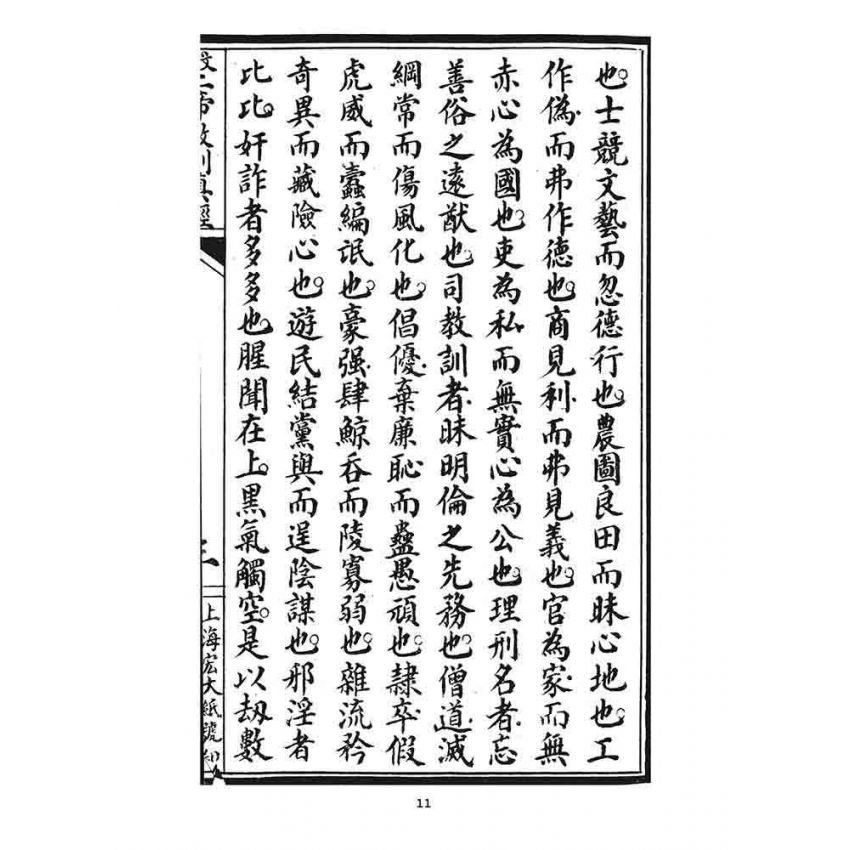 也士競文藝而忽德行也農圖良田而昧心地也工
作偽而弗作德也商見利而弗見義也官為家而無
赤心為國也吏為私而無實心為公也理刑名者忘
善俗之遠猷也司教訓者昧明倫之先務也僧道滅
綱常而傷風化也倡優棄廉恥而蠱愚頑也隸卒假
虎威而蠹編氓也豪强肆鯨吞而陵寡弱也雜流矜
奇異而藏險心也遊民結黨與而逞陰謀也邪淫者
比比奸詐者多多也腥聞在上黑氣觸空是以刼數
帝
真經
上海宏大紙號
11